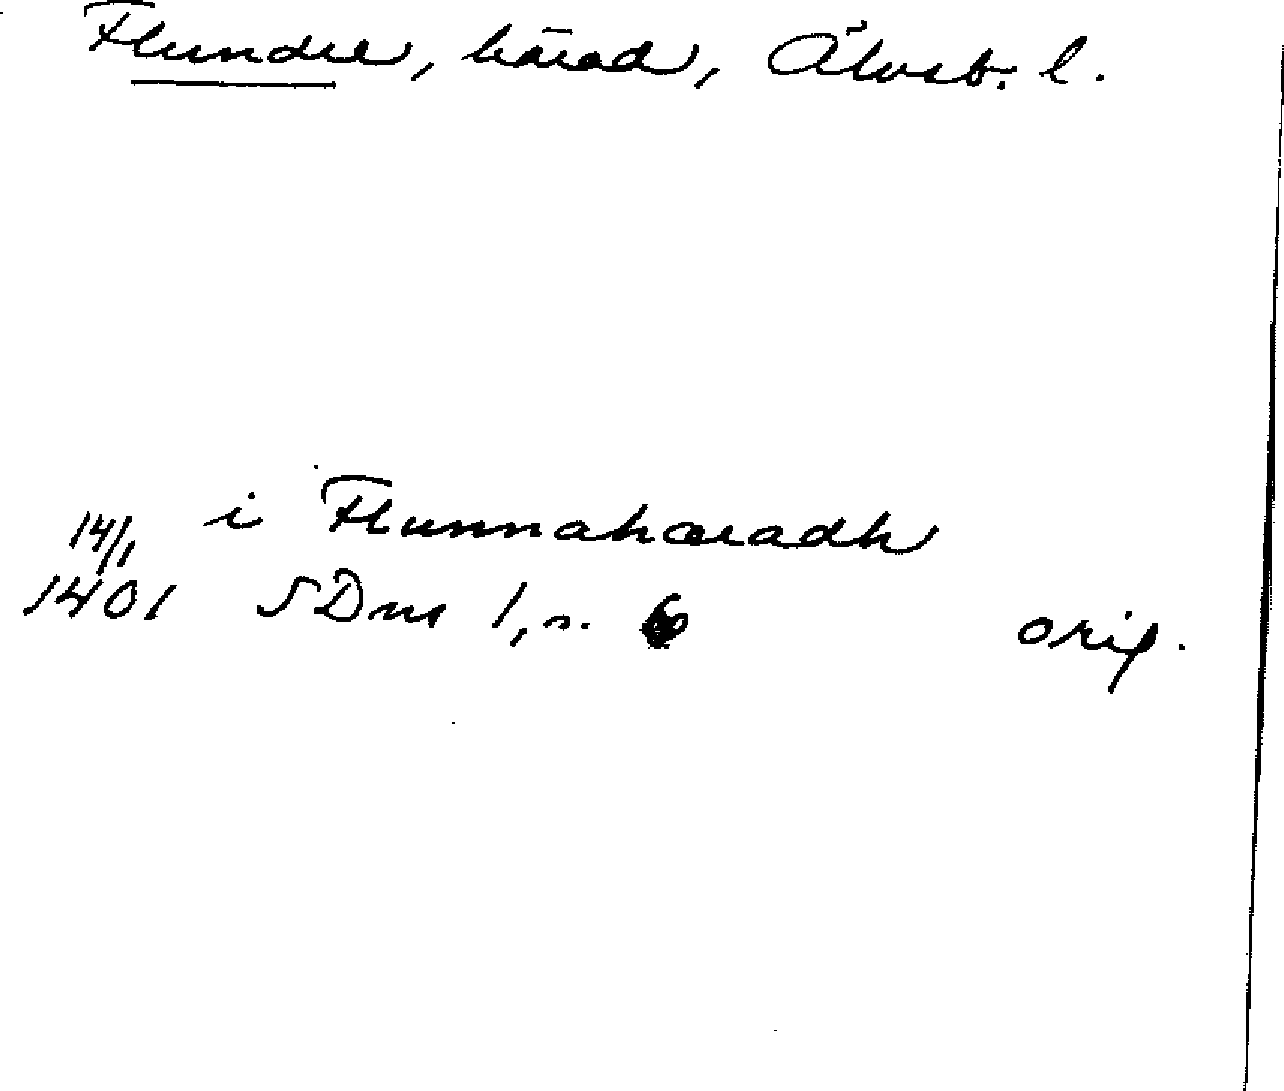 Flundre, härad, Älvsb. l.
i Flunnahæradh
14/1
1401 SDns 1, s. 6 orig.